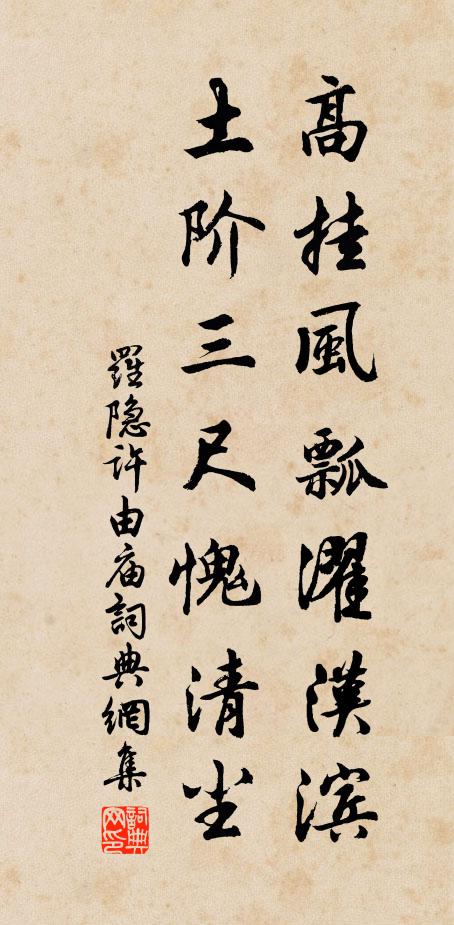 高挂風瓢濯漢滨
土阶三尺愧清尘
羅隐许由庙詞典網集
詞典网印